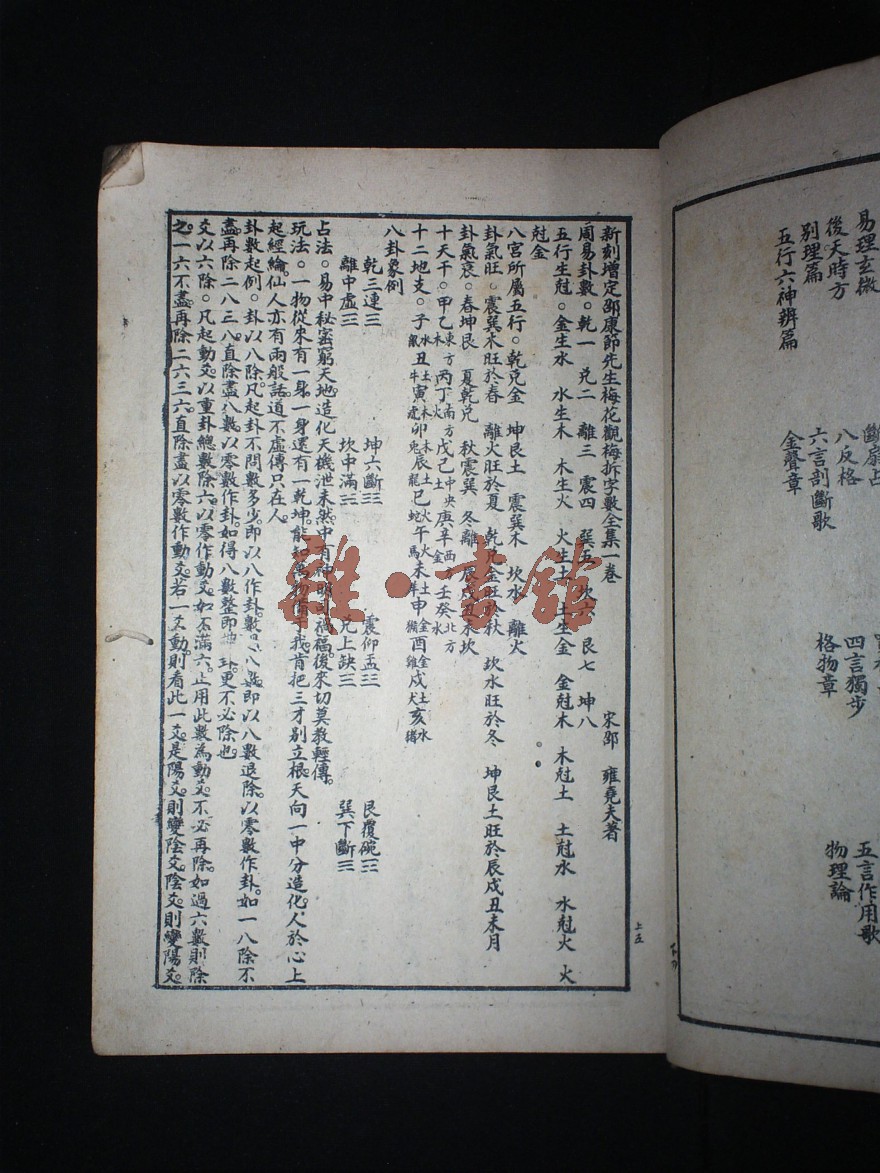 易理玄微
後天時方
別理篇
五行六神辨篇
八反格
六言剖斷歌
金聲章
四言獨步
格物章
五言作用歌
物理論
新刻增定邵康節先生梅花觀梅拆字數全集一卷 宋邵 雍堯夫著
周易卦數。乾一 兌二 離三 震四 巽五 坎六 艮七 坤八
五行生尅。金生水 水生木 木生火 火生土 土生金 金尅木 木尅土 土尅水 水尅火 火
尅金
八宮所屬五行。乾兌金 坤艮土 震巽木 坎水 離火
卦氣旺。震巽木旺於春 離火旺於夏 乾兌金旺於秋 坎水旺於冬 坤艮土旺於辰戌丑未月
卦氣衰。春坤艮 夏乾兌 秋震巽 冬離 辰戌丑未坎
十天干。甲乙東方木 丙丁南方火 戊己中央土 庚辛西方金 壬癸北方水
十二地支。子水鼠 丑土牛 寅木虎 卯木兔 辰土龍 巳火蛇 午火馬 未土羊 申金猴 酉金雞 戌土犬 亥水猪
八卦象例
乾三連☰ 坤六斷☷ 震仰盂☳ 艮覆碗☶
離中虛☲ 坎中滿☵ 兌上缺☱ 巽下斷☴
占法。易中秘密窮天地。造化天機泄未然。中有神明司禍福。後來切莫教輕傳。
玩法。一物從來有一身。一身還有一乾坤。能知萬物備于我。肯把三才別立根。天向一中分造化。人於心上
起經綸。仙人亦有兩般話。道不虛傳只在人。
卦數起例。卦以八除。凡起卦不問數多少。即以八作卦數。過八數即以八數退除。以零數作卦。如一八除不
盡再除二八三八。直除盡八數。以零數作卦。如得八數整即坤卦。更不必除也。
爻以六除。凡起動爻。以重卦總數除六。以零作動爻。如不滿六。止用此數為動爻。不必再除。如過六數則除
之。一六不盡。再除二六三六。直除盡以零數作動爻。若一爻動則看此一爻。是陽爻。則變陰爻。陰爻。則變陽爻。
上五
雜·書館